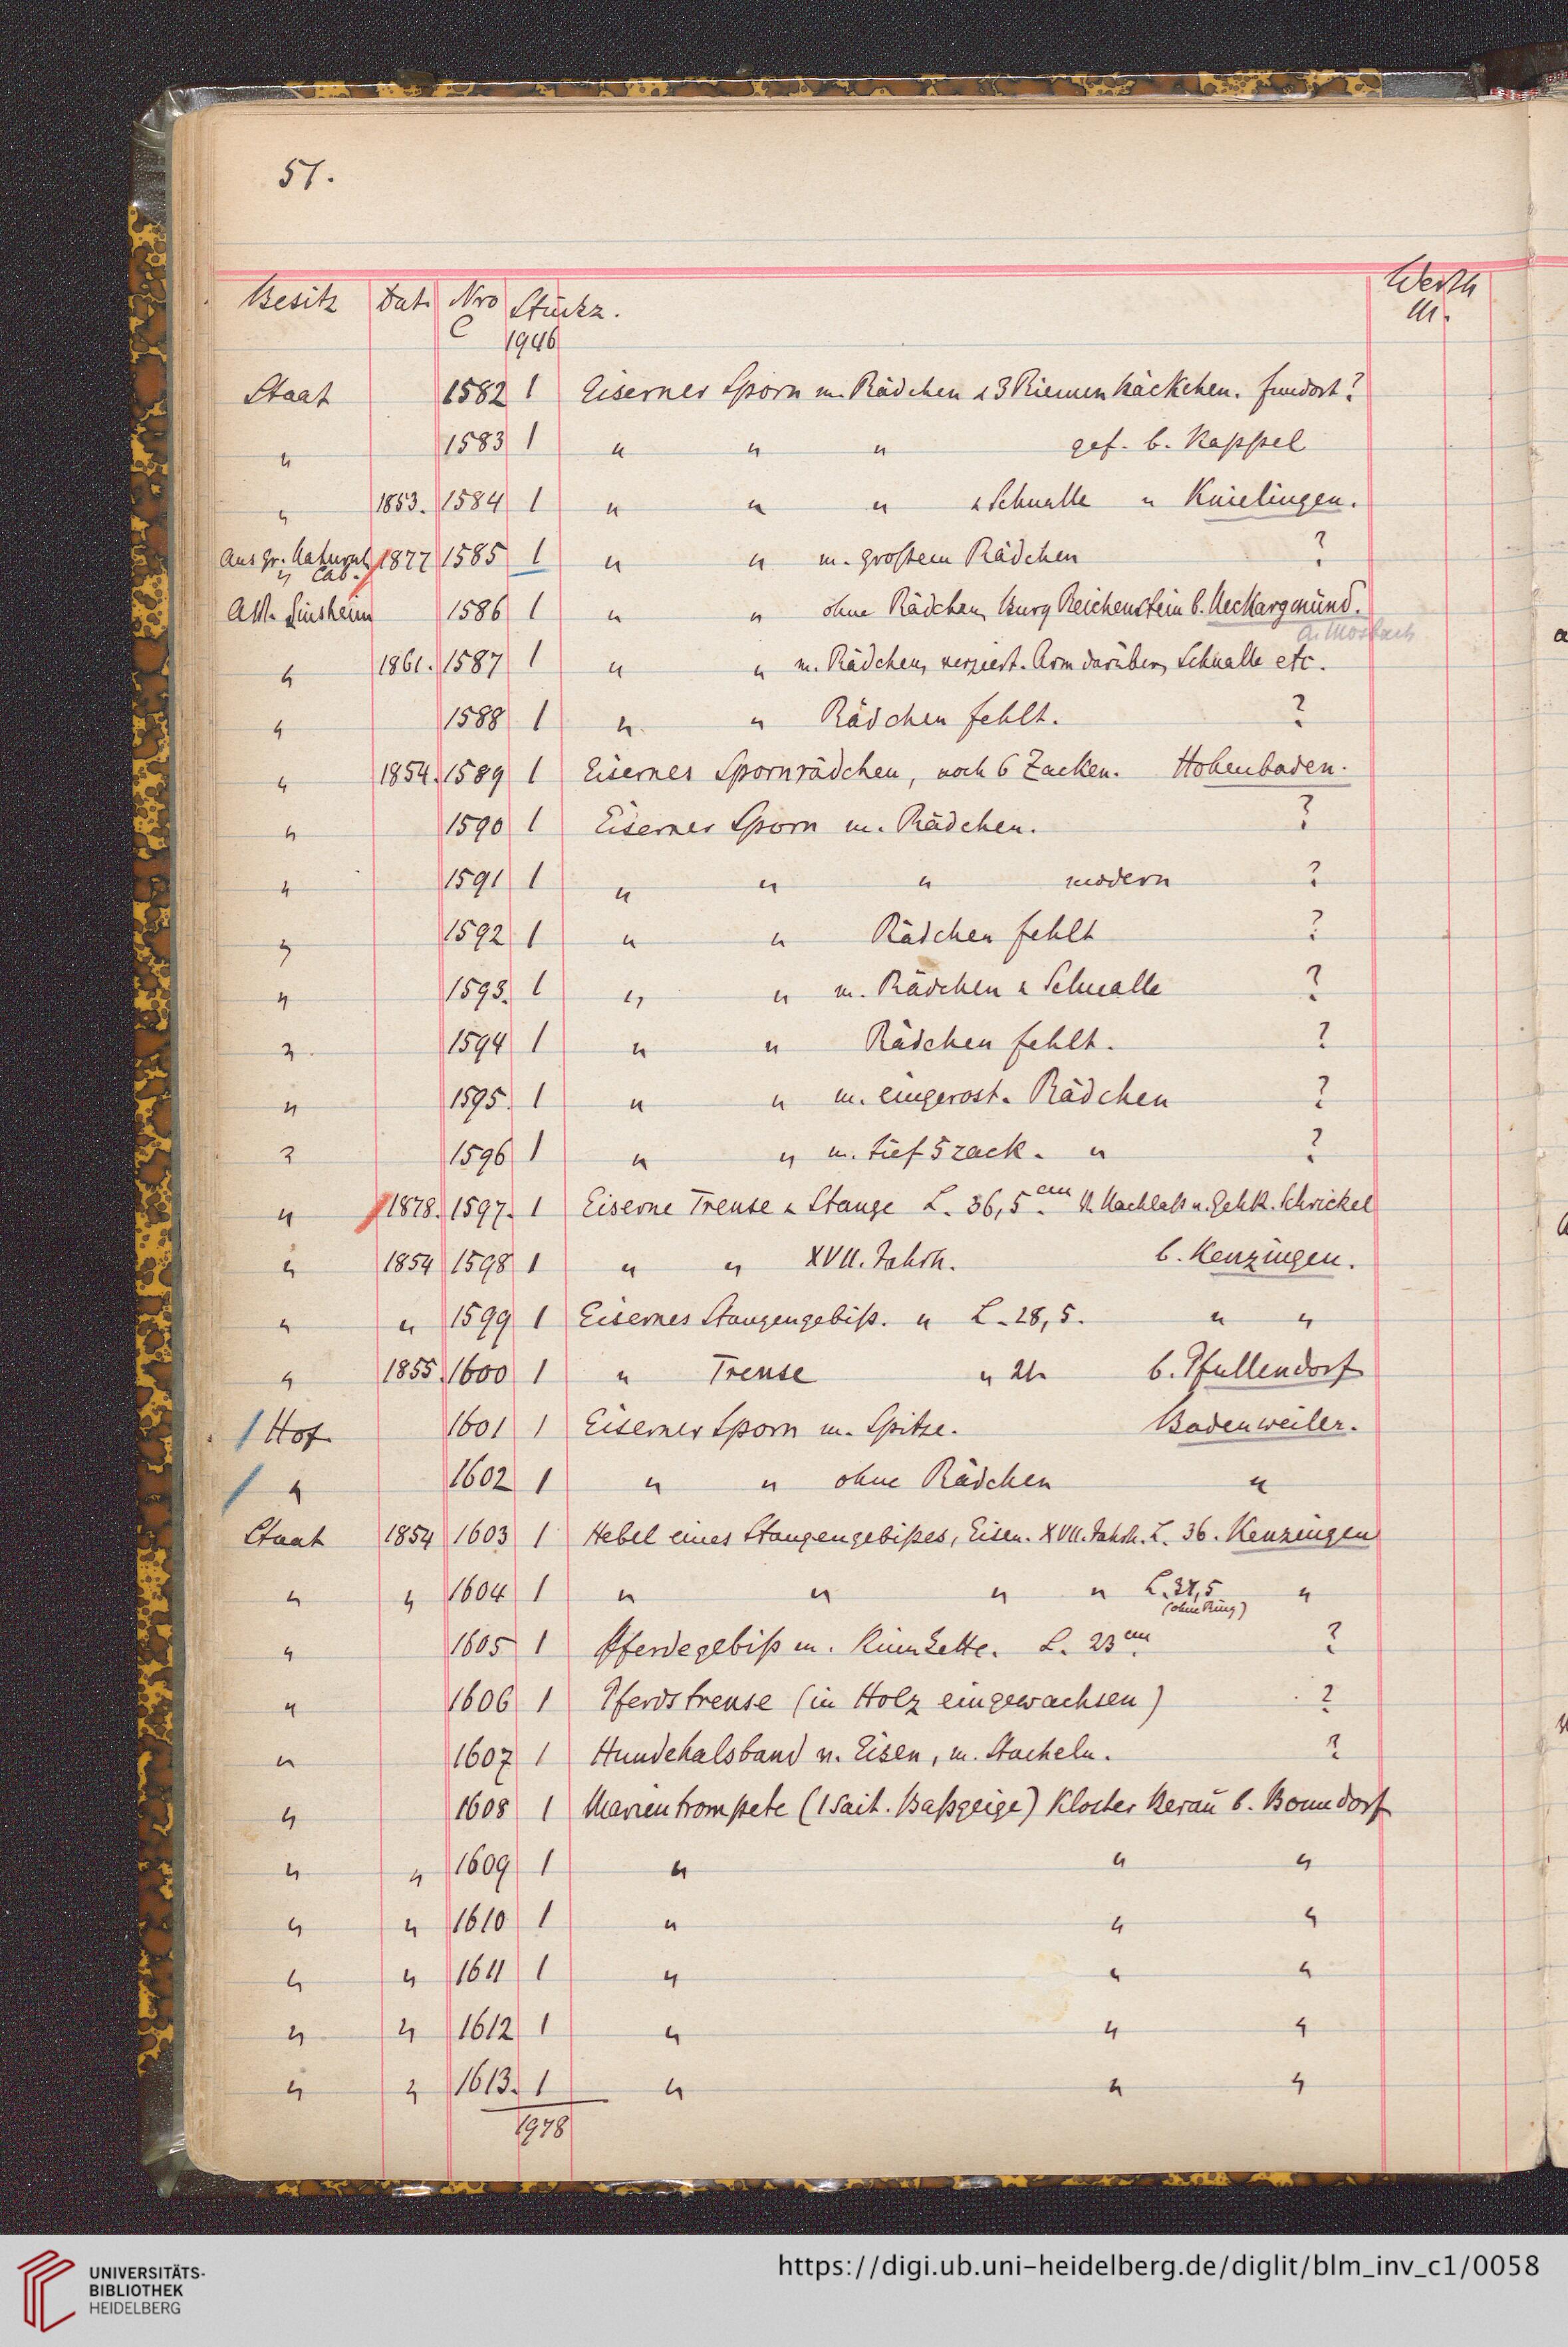 51.
Besitz Dat. Nro Stückz. Werth
C M.
1946
Staat 1582 1 Eiserner Sporn m. Rädchen & 3 Riemenhäckchen. Fundort?
" 1583 1 " " " gef. b. Kappel
" 1853. 1584 1 " " " & Schnalle " Knielingen.
Aus Gr. Natural. 1877 1585 1 " " m. großem Rädchen ?
" Cab.
Alt. Sinsheim 1586 1 " " ohne Rädchen, Burg Reichenstein b. Neckargmünd.
A. Mosbach
" 1861. 1587 1 " " m. Rädchen, verziert. Arm darüber, Schnalle etc.
" 1588 1 " " Rädchen fehlt. ?
" 1854. 1589 1 Eisernes Spornrädchen, noch 6 Zacken. Hohenbaden.
" 1590 1 Eiserner Sporn m. Rädchen. ?
" 1591 1 " " " modern ?
" 1592 1 " " Rädchen fehlt ?
" 1593. 1 " " m. Rädchen & Schnalle ?
" 1594 1 " " Rädchen fehlt. ?
" 1595. 1 " " m. eingerost. Rädchen ?
" 1596 1 " " m. tief 5 zack. " ?
" 1878. 1597. 1 Eiserne Trense & Stange L. 36,5 cm. Nachlaß v. Schrickel
" 1854 1598 1 " " XVII. Jahrh. b. Kenzingen.
" " 1599 1 Eisernes Stangengebiß. " L. 28,5. " "
" 1855. 1600 1 " Trense " 21. b. Pfullendorf
Hof 1601 1 Eiserner Sporn m. Spitze. Badenweiler.
" 1602 1 " " ohne Rädchen "
Staat 1854 1603 1 Hebel eines Stangengebißes, Eisen. XVII. Jahrh. L. 36. Kenzingen
" " 1604 1 " " " " L. 37,5 "
(ohne Ring)
" 1605 1 Pferdegebiß m. Kinnkette. L. 23 cm. ?
" 1606 1 Pferdstrense (in Holz eingewachsen) ?
" 1607 1 Hundehalsband v. Eisen, m. Stacheln. ?
" 1608 1 Marientrompete (1 sait. Baßgeige) Kloster Berau b. Bonndorf
" " 1609 1 " " "
" " 1610 1 " " "
" " 1611 1 " " "
" " 1612 1 " " "
" " 1613. 1 " " "
1978
UNIVERSITÄTS-
BIBLIOTHEK
HEIDELBERG
https://digi.ub.uni-heidelberg.de/diglit/blm_inv_c1/0058